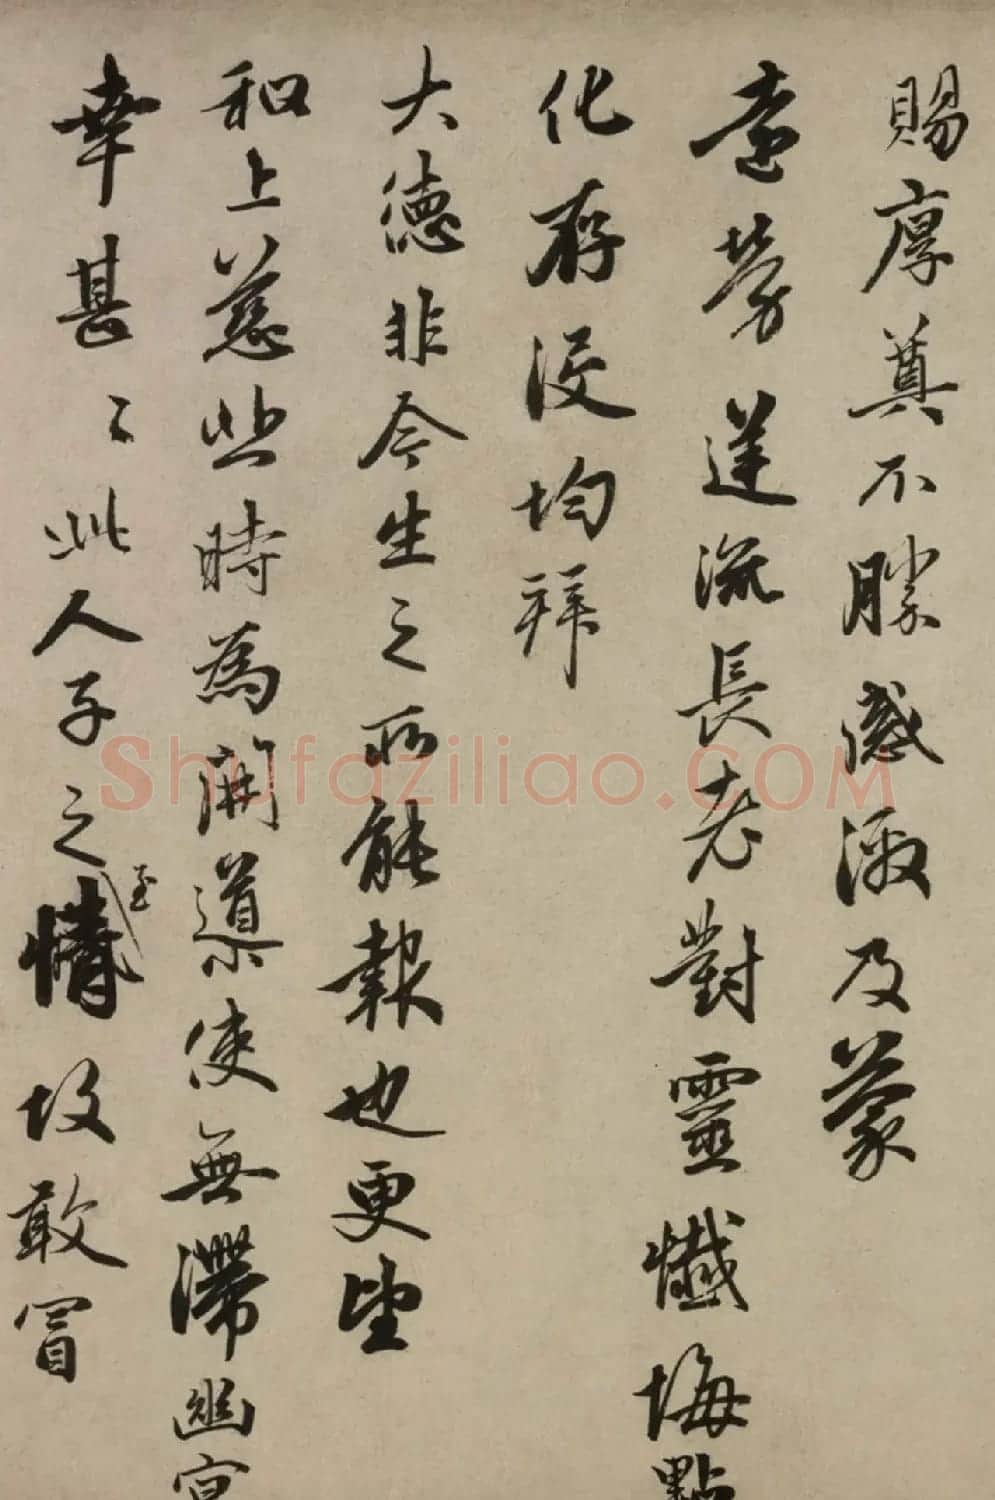 賜厚奠不勝感激及蒙
遠勞運流長老對靈懺悔點
化存沒均拜
大德非今生之所能報也更望
和上慈悲時為開導使無滯幽冥
幸甚〻此人子之情
至
故敢冒
Shufaziliao.COM